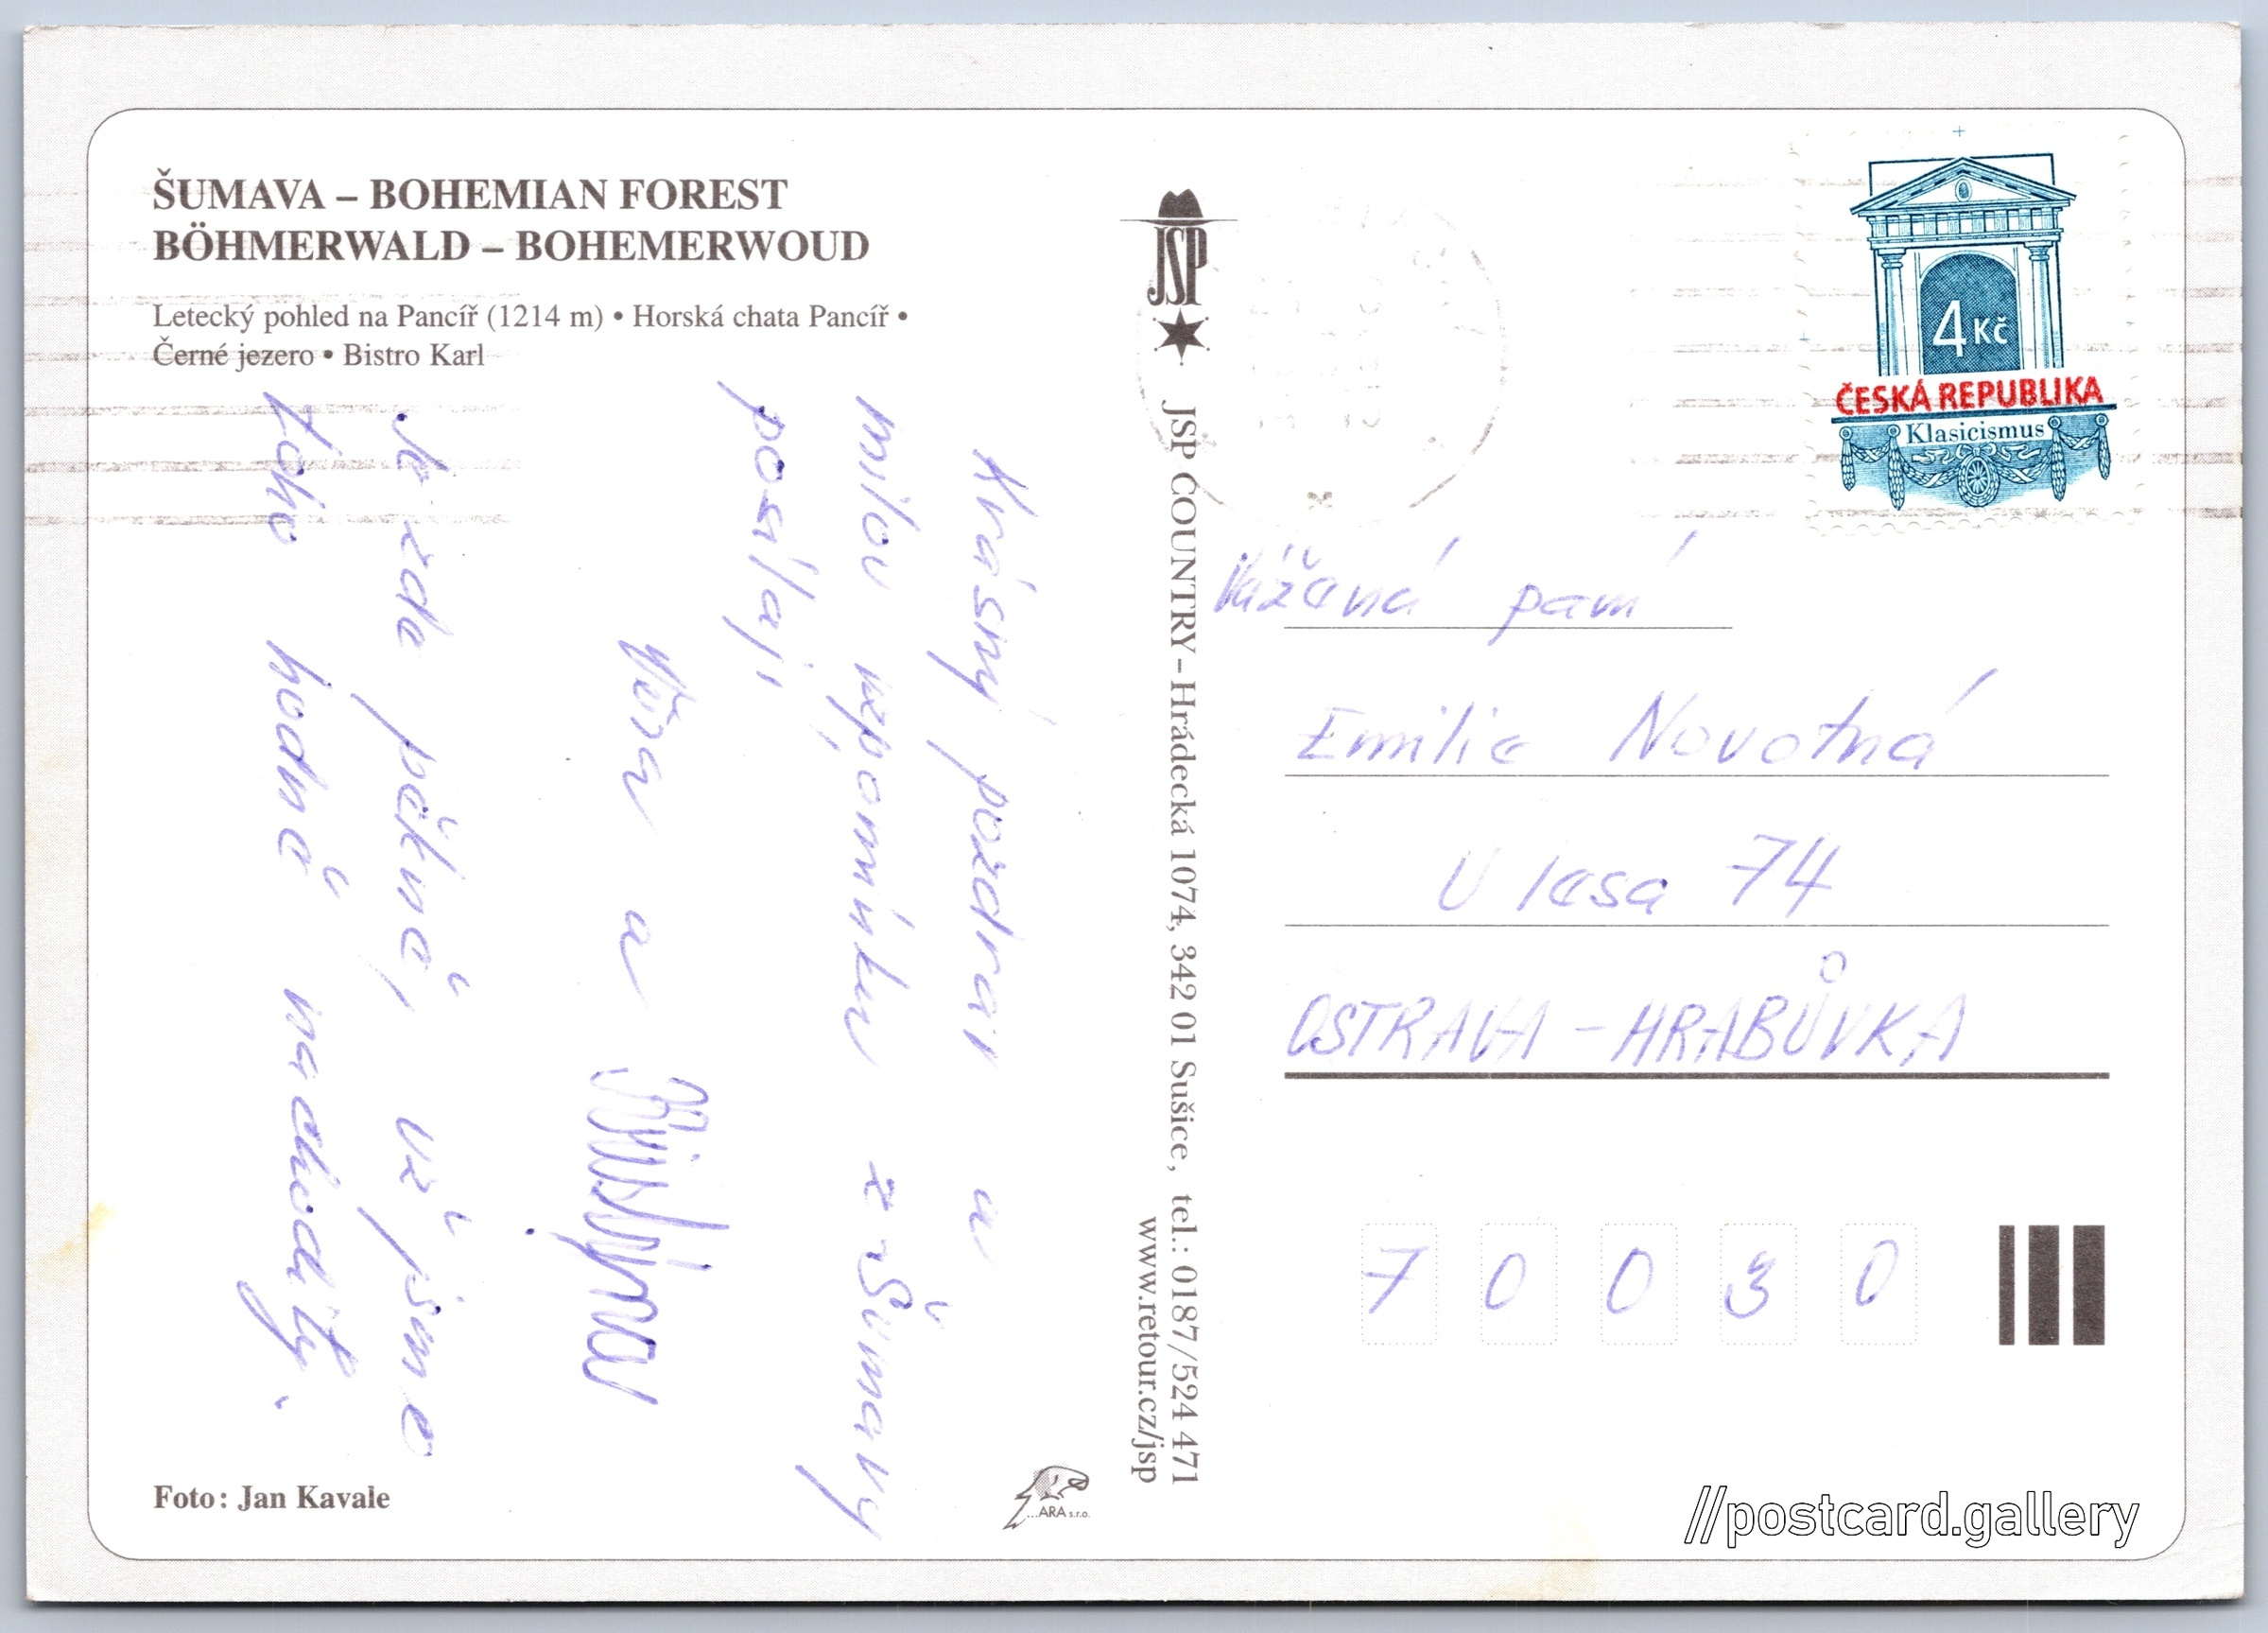 ŠUMAVA – BOHEMIAN FOREST
BÖHMERWALD – BOHEMERWOUD
Letecký pohled na Pancíř (1214 m) • Horská chata Pancíř •
Černé jezero • Bistro Karl
Krásný pozdrav a
milou vzpomínku z Šumavy
posílají,
Věra a
Je zde pěkně, už jsme
toho hodně nachodily.
Foto: Jan Kavale
JSP
JSP COUNTRY – Hrádecká 1074, 342 01 Sušice, tel.: 0187/524 471
www.retour.cz/jsp
...ARA s.r.o.
4 Kč
ČESKÁ REPUBLIKA
Klasicismus
Vážená paní
Emilie Novotná
U lesa 74
OSTRAVA – HRABŮVKA
7 0 0 3 0
//postcard.gallery